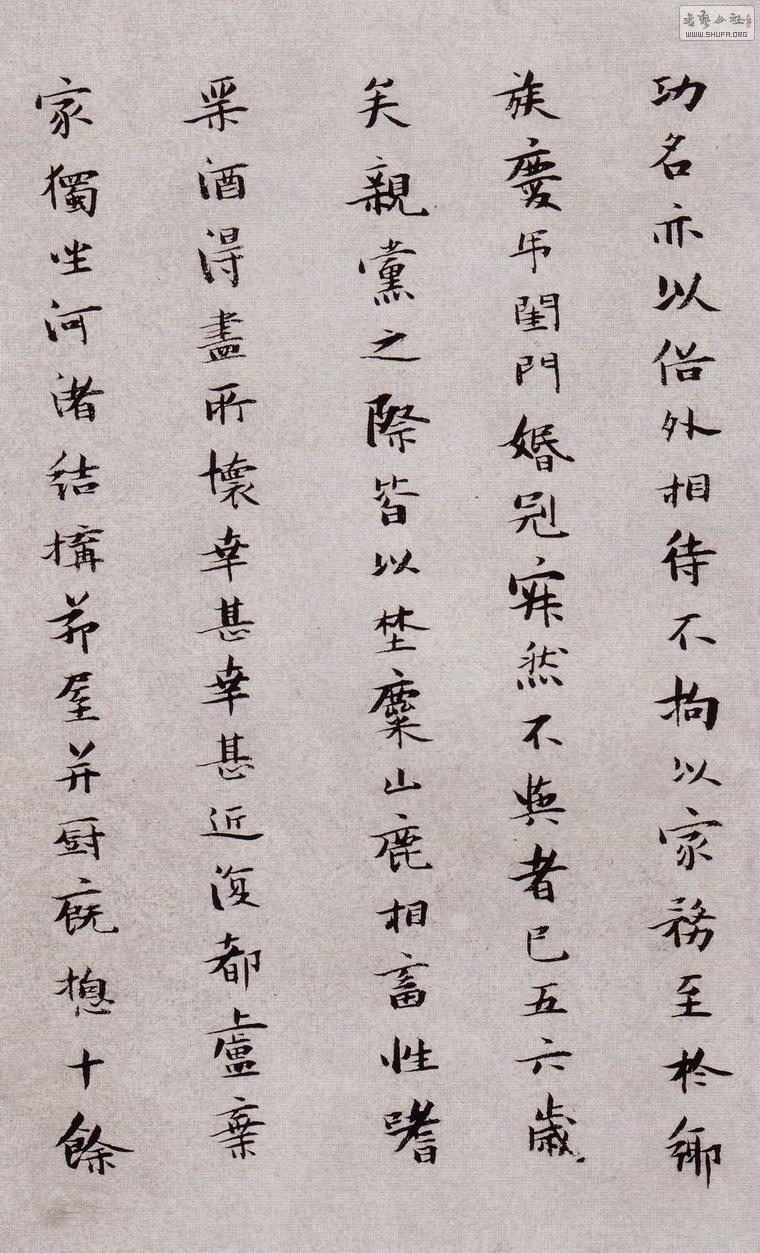 功名亦以俗外相待不拘以家務至於鄉
族慶吊閨門婚冠寂然不與者已五六歲
矣親黨之際皆以埜麋山鹿相畜性嗜
琹酒得盡所懷幸甚幸甚近復都盧棄
家獨坐河渚結搆茆屋并厨廐摠十餘
書藝公社
WWW.SHUFA.ORG